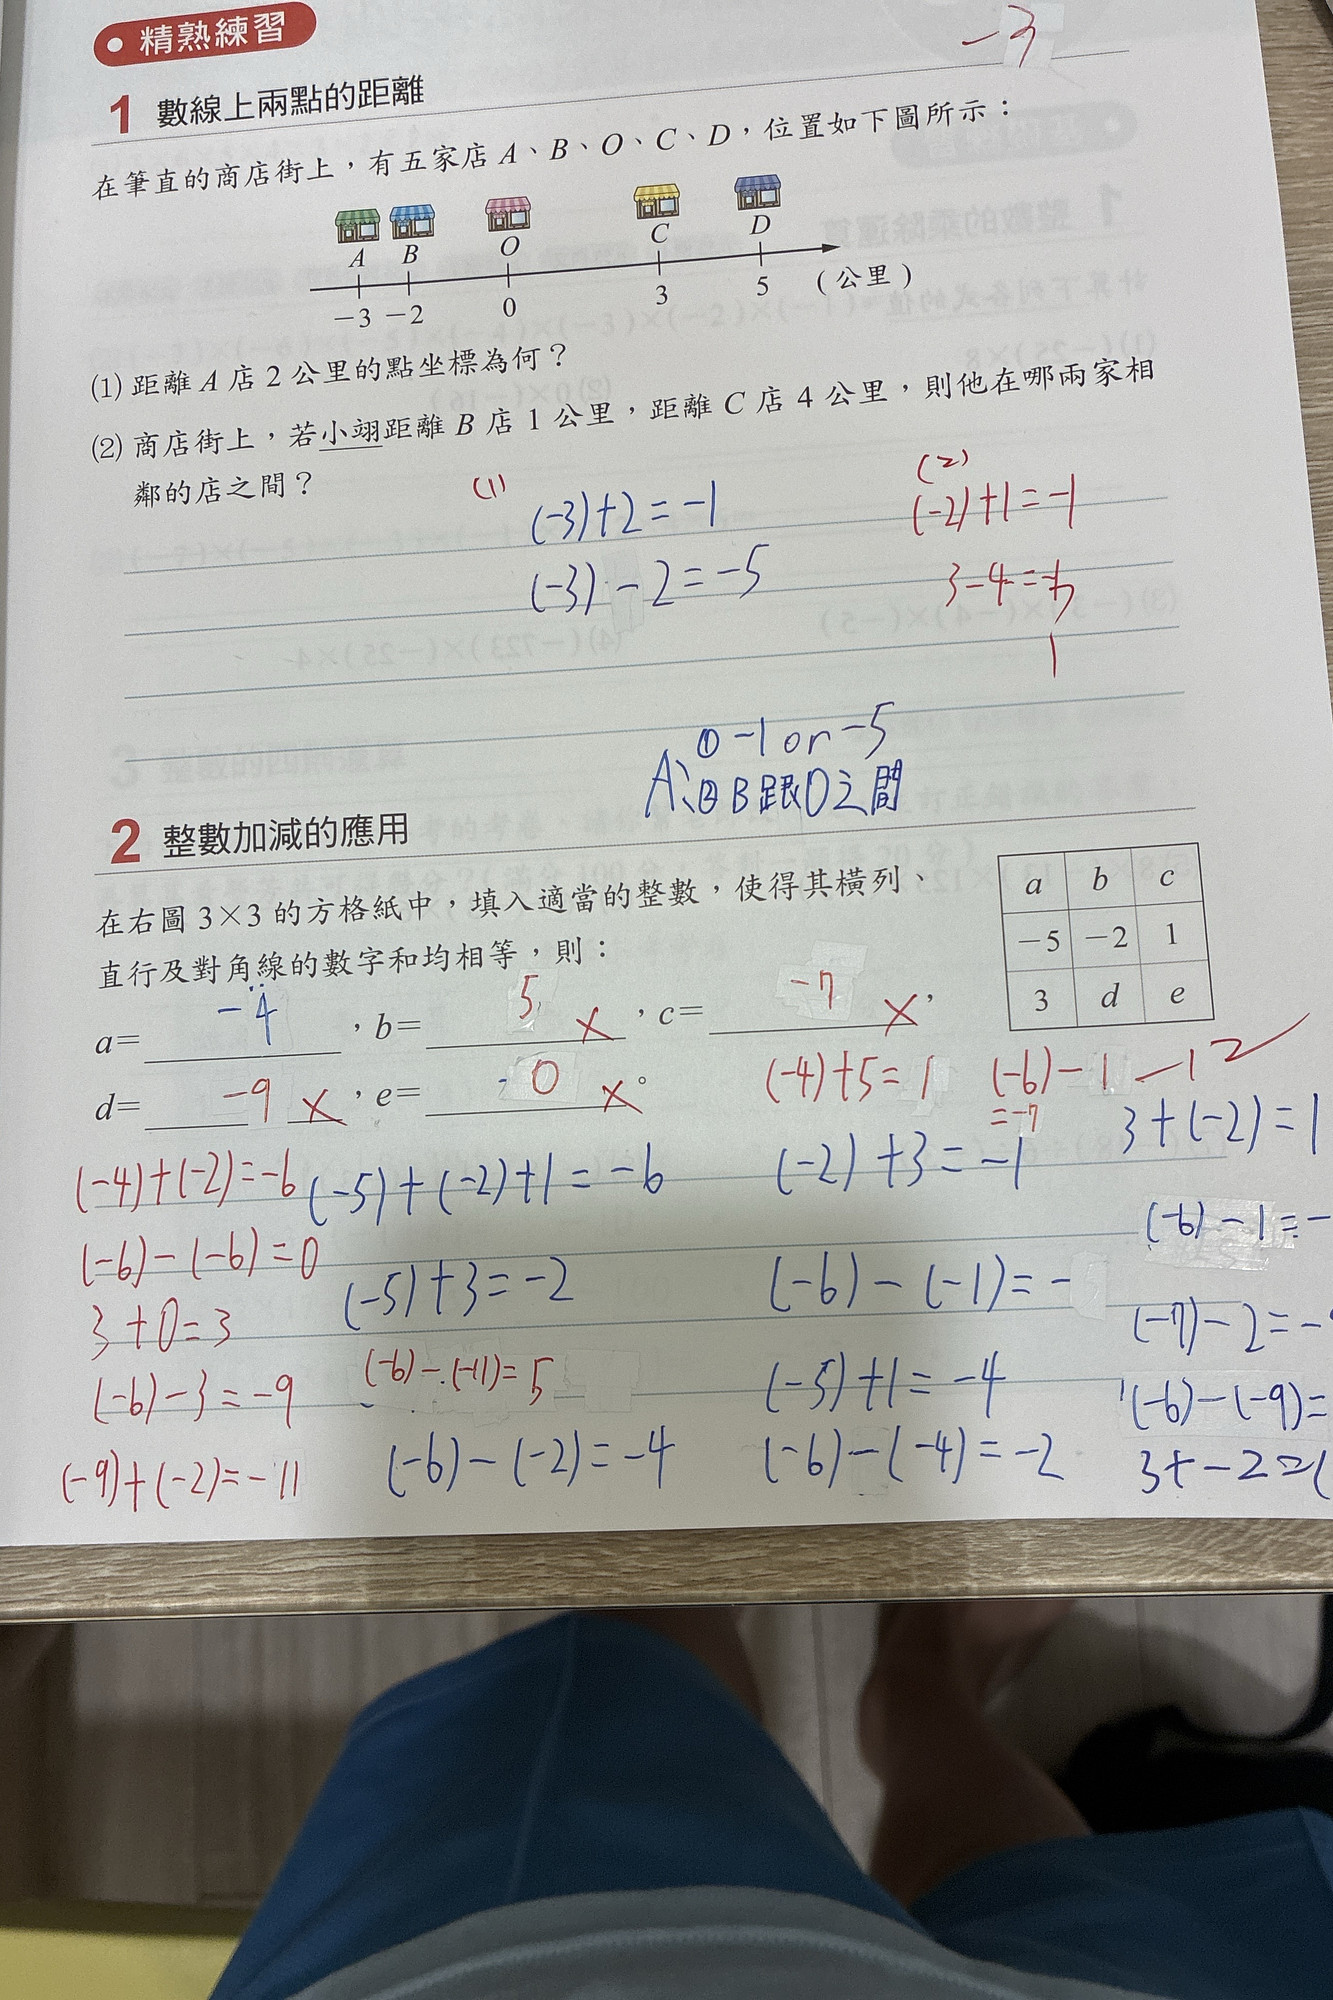 精熟練習
-3
1 數線上兩點的距離
在筆直的商店街上,有五家店 A、B、O、C、D,位置如下圖所示:
A B O C D
-3 -2 0 3 5 (公里)
(1) 距離 A 店 2 公里的點坐標為何?
(2) 商店街上,若小翊距離 B 店 1 公里,距離 C 店 4 公里,則他在哪兩家相
鄰的店之間?
(1)
(-3)+2=-1
(-3)-2=-5
(2)
(-2)+1=-1
3-4=
1
① -1 or -5
A:② B跟O之間
2 整數加減的應用
在右圖 3×3 的方格紙中,填入適當的整數,使得其橫列、
直行及對角線的數字和均相等,則:
a b c
-5 -2 1
3 d e
a= -4 ,b= 5 × ,c= -7 × ,
d= -9 × ,e= 0 × 。
(-4)+5=1
(-6)-1
=-7
-12
3+(-2)=1
(-4)+(-2)=-6
(-5)+(-2)+1=-6
(-2)+3=-1
(-6)-1=-
(-6)-(-6)=0
(-5)+3=-2
(-6)-(-1)=-
(-7)-2=-
3+0=3
(-6)-(-11)=5
(-5)+1=-4
(-6)-(-9)=
(-6)-3=-9
(-6)-(-2)=-4
(-6)-(-4)=-2
3+-2=
(-9)+(-2)=-11